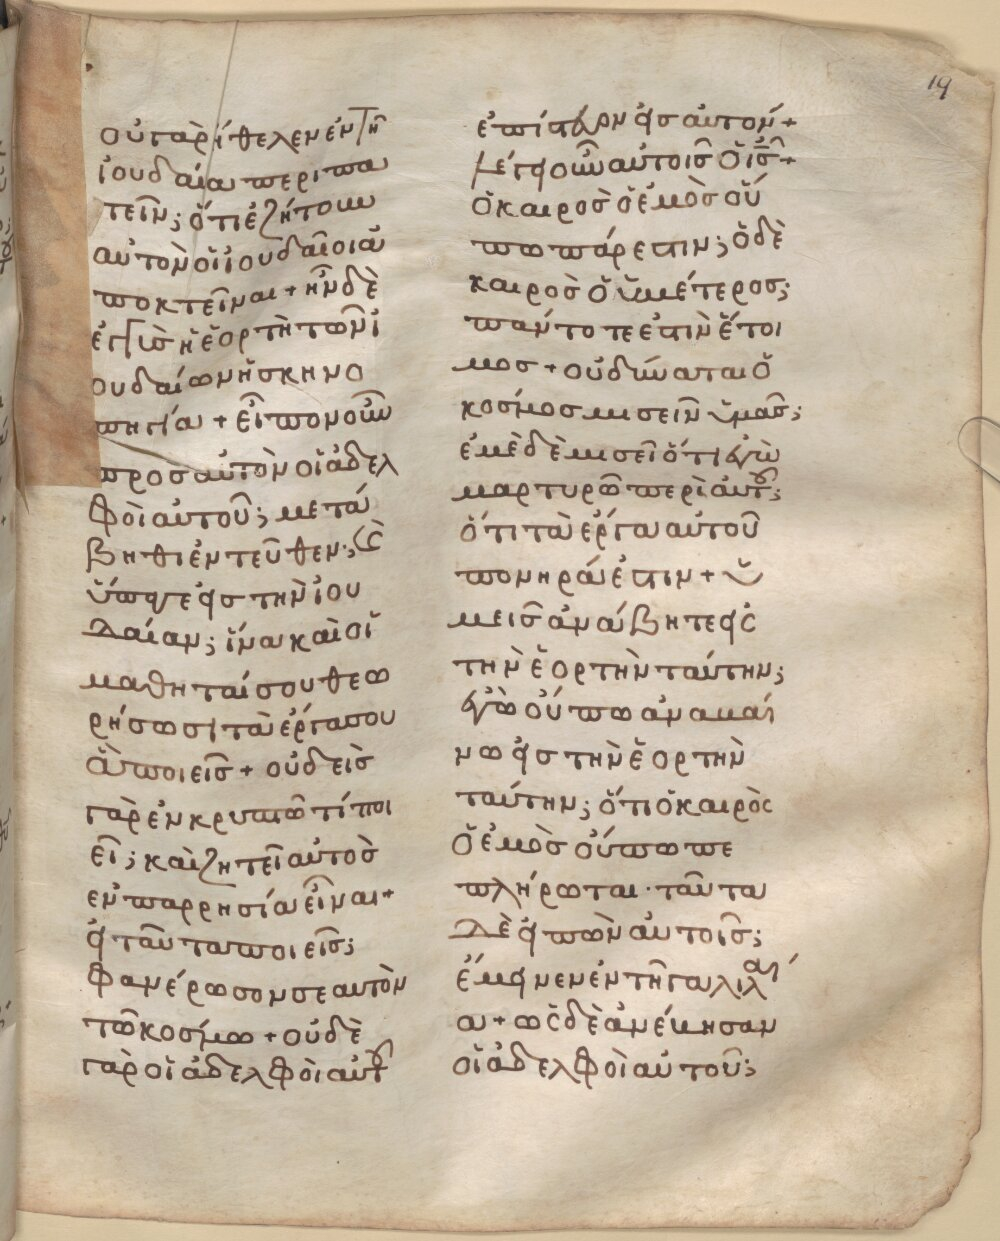 19
οὐ γὰρ ἤθελεν ἐν τῇ
ἰουδαία περιπα
τεῖν; ὅτι ἐζήτουν
αὐτὸν οἱ ἰουδαῖοι ἀ
ποκτεῖναι + ἦν δὲ
ἐγγὺς ἡ ἑορτὴ τῶν ἰ
ουδαίων ἡ σκηνο
πηγία + εἶπον οὖν
προσ αὐτὸν οἱ ἀδελ
φοὶ αὐτοῦ; μετά
βηθι ἐντεῦθεν; καὶ
ὕπαγε εἰσ τὴν ἰου
δαίαν; ἵνα καὶ οἱ
μαθηταί σου θεω
ρήσωσι τὰ ἔργα σου
ἃ ποιεῖσ + οὐδεὶσ
γὰρ ἐν κρυπτῶ τί ποι
εῖ; καὶ ζητεῖ αὐτὸσ
ἐν παρρησία εἶναι +
εἰ ταῦτα ποιεῖσ;
φανέρωσον σεαυτὸν
τῶ κοσμω + οὐδὲ
γὰρ οἱ ἀδελφοὶ αὐτοῦ
ἐπίστευον εἰσ αὐτόν +
λέγει οὖν αὐτοισ ὁ ισ +
ὁ καιροσ ὁ ἐμὸσ οὔ
πω πάρεστιν; ὁ δὲ
καιρὸσ ὁ ὑμέτεροσ;
πάντοτε ἐστιν ἕτοι
μοσ + οὐ δύναται ὁ
κοσμοσ μισεῖν ὑμᾶσ;
ἐμὲ δὲ μισεῖ ὅτι ἐγὼ
μαρτυρῶ περὶ αὐτοῦ;
ὅτι τὰ ἔργα αὐτοῦ
πονηρά ἐστιν + ὑ
μεῖσ ἀνάβητε εἰσ
τὴν ἑορτὴν ταύτην;
ἐγὼ οὔπω ἀναβαί
νω εἰσ τὴν ἑορτὴν
ταύτην; ὅτι ὁ καιρὸσ
ὁ ἐμὸσ οὔπω πε
πλήρωται · ταῦτα
δὲ εἰπὼν αὐτοῖσ;
ἔμεινεν ἐν τῆ γαλιλαί
α + ωσ δὲ ἀνέβησαν
οἱ ἀδελφοὶ αὐτοῦ;